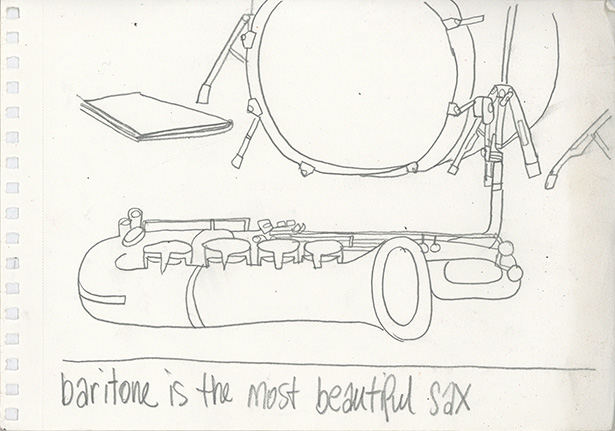 baritone is the most beautiful sax